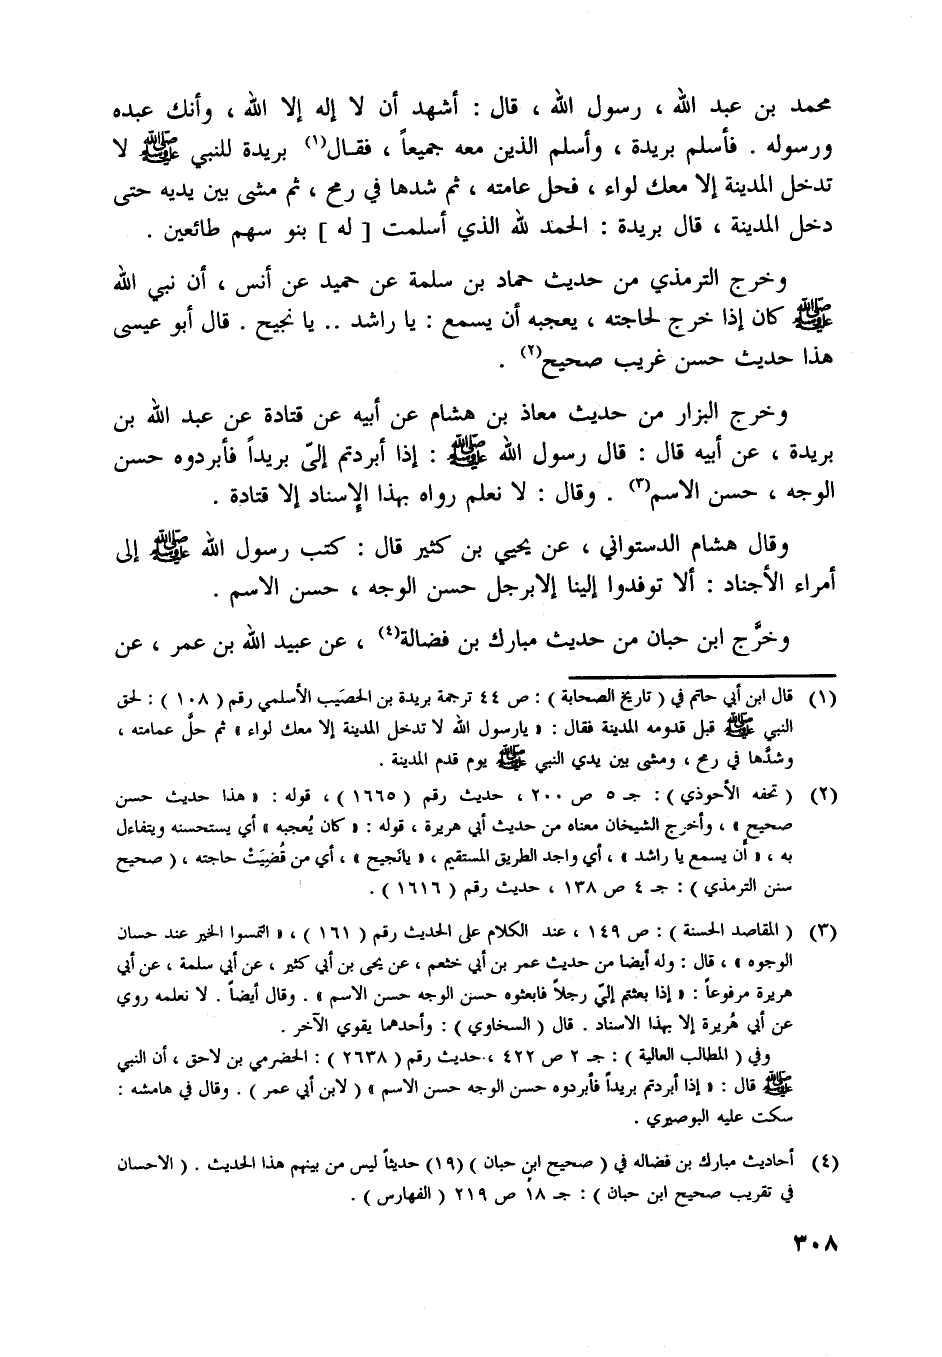 محمد بن عبد الله ، رسول الله ، قال : أشهد أن لا إله إلا الله ، وأنك عبده
ورسوله . فأسلم بريدة ، وأسلم الذين معه جميعاً ، فقـال(١) بريدة للنبي ﷺ لا
تدخل المدينة إلا معك لواء ، فحل عامته ، ثم شدها في رمح ، ثم مشى بين يديه حتى
دخل المدينة ، قال بريدة : الحمد لله الذي أسلمت [ له ] بنو سهم طائعين .
وخرج الترمذي من حديث حماد بن سلمة عن حميد عن أنس ، أن نبي الله
ﷺ كان إذا خرج لحاجته ، يعجبه أن يسمع : يا راشد .. يا نجيح . قال أبو عيسى
هذا حديث حسن غريب صحيح(٢) .
وخرج البزار من حديث معاذ بن هشام عن أبيه عن قتادة عن عبد الله بن
بريدة ، عن أبيه قال : قال رسول الله ﷺ : إذا أبردتم إليّ بريداً فأبردوه حسن
الوجه ، حسن الاسم(٣) . وقال : لا نعلم رواه بهذا الإسناد إلا قتادة .
وقال هشام الدستواني ، عن يحيي بن كثير قال : كتب رسول الله ﷺ إلى
أمراء الأجناد : ألا توفدوا إلينا إلابرجل حسن الوجه ، حسن الاسم .
وخرَّج ابن حبان من حديث مبارك بن فضالة(٤) ، عن عبيد الله بن عمر ، عن
(١) قال ابن أبي حاتم في ( تاريخ الصحابة ) : ص ٤٤ ترجمة بريدة بن الحصَيب الأسلمي رقم ( ١٠٨ ) : لحق
النبي ﷺ قبل قدومه المدينة فقال : « يارسول الله لا تدخل المدينة إلا معك لواء » ثم حلَّ عمامته ،
وشدَّها في رمح ، ومشى بين يدي النبي ﷺ يوم قدم المدينة .
(٢) ( تحفه الأحوذي ) : جـ ٥ ص ٢٠٠ ، حديث رقم ( ١٦٦٥ ) ، قوله : « هذا حديث حسن
صحيح » ، وأخرج الشيخان معناه من حديث أبي هريرة ، قوله : « كان يُعجبه » أي يستحسنه ويتفاءل
به ، « أن يسمع يا راشد » ، أي واجد الطريق المستقيم ، « يانَجيح » ، أي من قُضِيَتْ حاجته ، ( صحيح
سنن الترمذي ) : جـ ٤ ص ١٣٨ ، حديث رقم ( ١٦١٦ ) .
(٣) ( المقاصد الحسنة ) : ص ١٤٩ ، عند الكلام على الحديث رقم ( ١٦١ ) ، « التمسوا الخير عند حسان
الوجوه » ، قال : وله أيضا من حديث عمر بن أبي خثعم ، عن يحى بن أبي كثير ، عن أبي سلمة ، عن أبي
هريرة مرفوعاً : « إذا بعثتم إليّ رجلاً فابعثوه حسن الوجه حسن الاسم » . وقال أيضاً . لا نعلمه روي
عن أبي هُريرة إلا بهذا الاسناد . قال ( السخاوي ) : وأحدهما يقوي الآخر .
وفي ( المطالب العالية ) : جـ ٢ ص ٤٢٢ ، حديث رقم ( ٢٦٣٨ ) : الحضرمي بن لاحق ، أن النبي
ﷺ قال : « إذا أبردتم بريداً فأبردوه حسن الوجه حسن الاسم » ( لابن أبي عمر ) . وقال في هامشه :
سكت عليه البوصيري .
(٤) أحاديث مبارك بن فضاله في ( صحيح ابن حبان ) (١٩) حديثاً ليس من بينهم هذا الحديث . ( الاحسان
في تقريب صحيح ابن حبان ) : جـ ١٨ ص ٢١٩ ( الفهارس ) .
٣٠٨